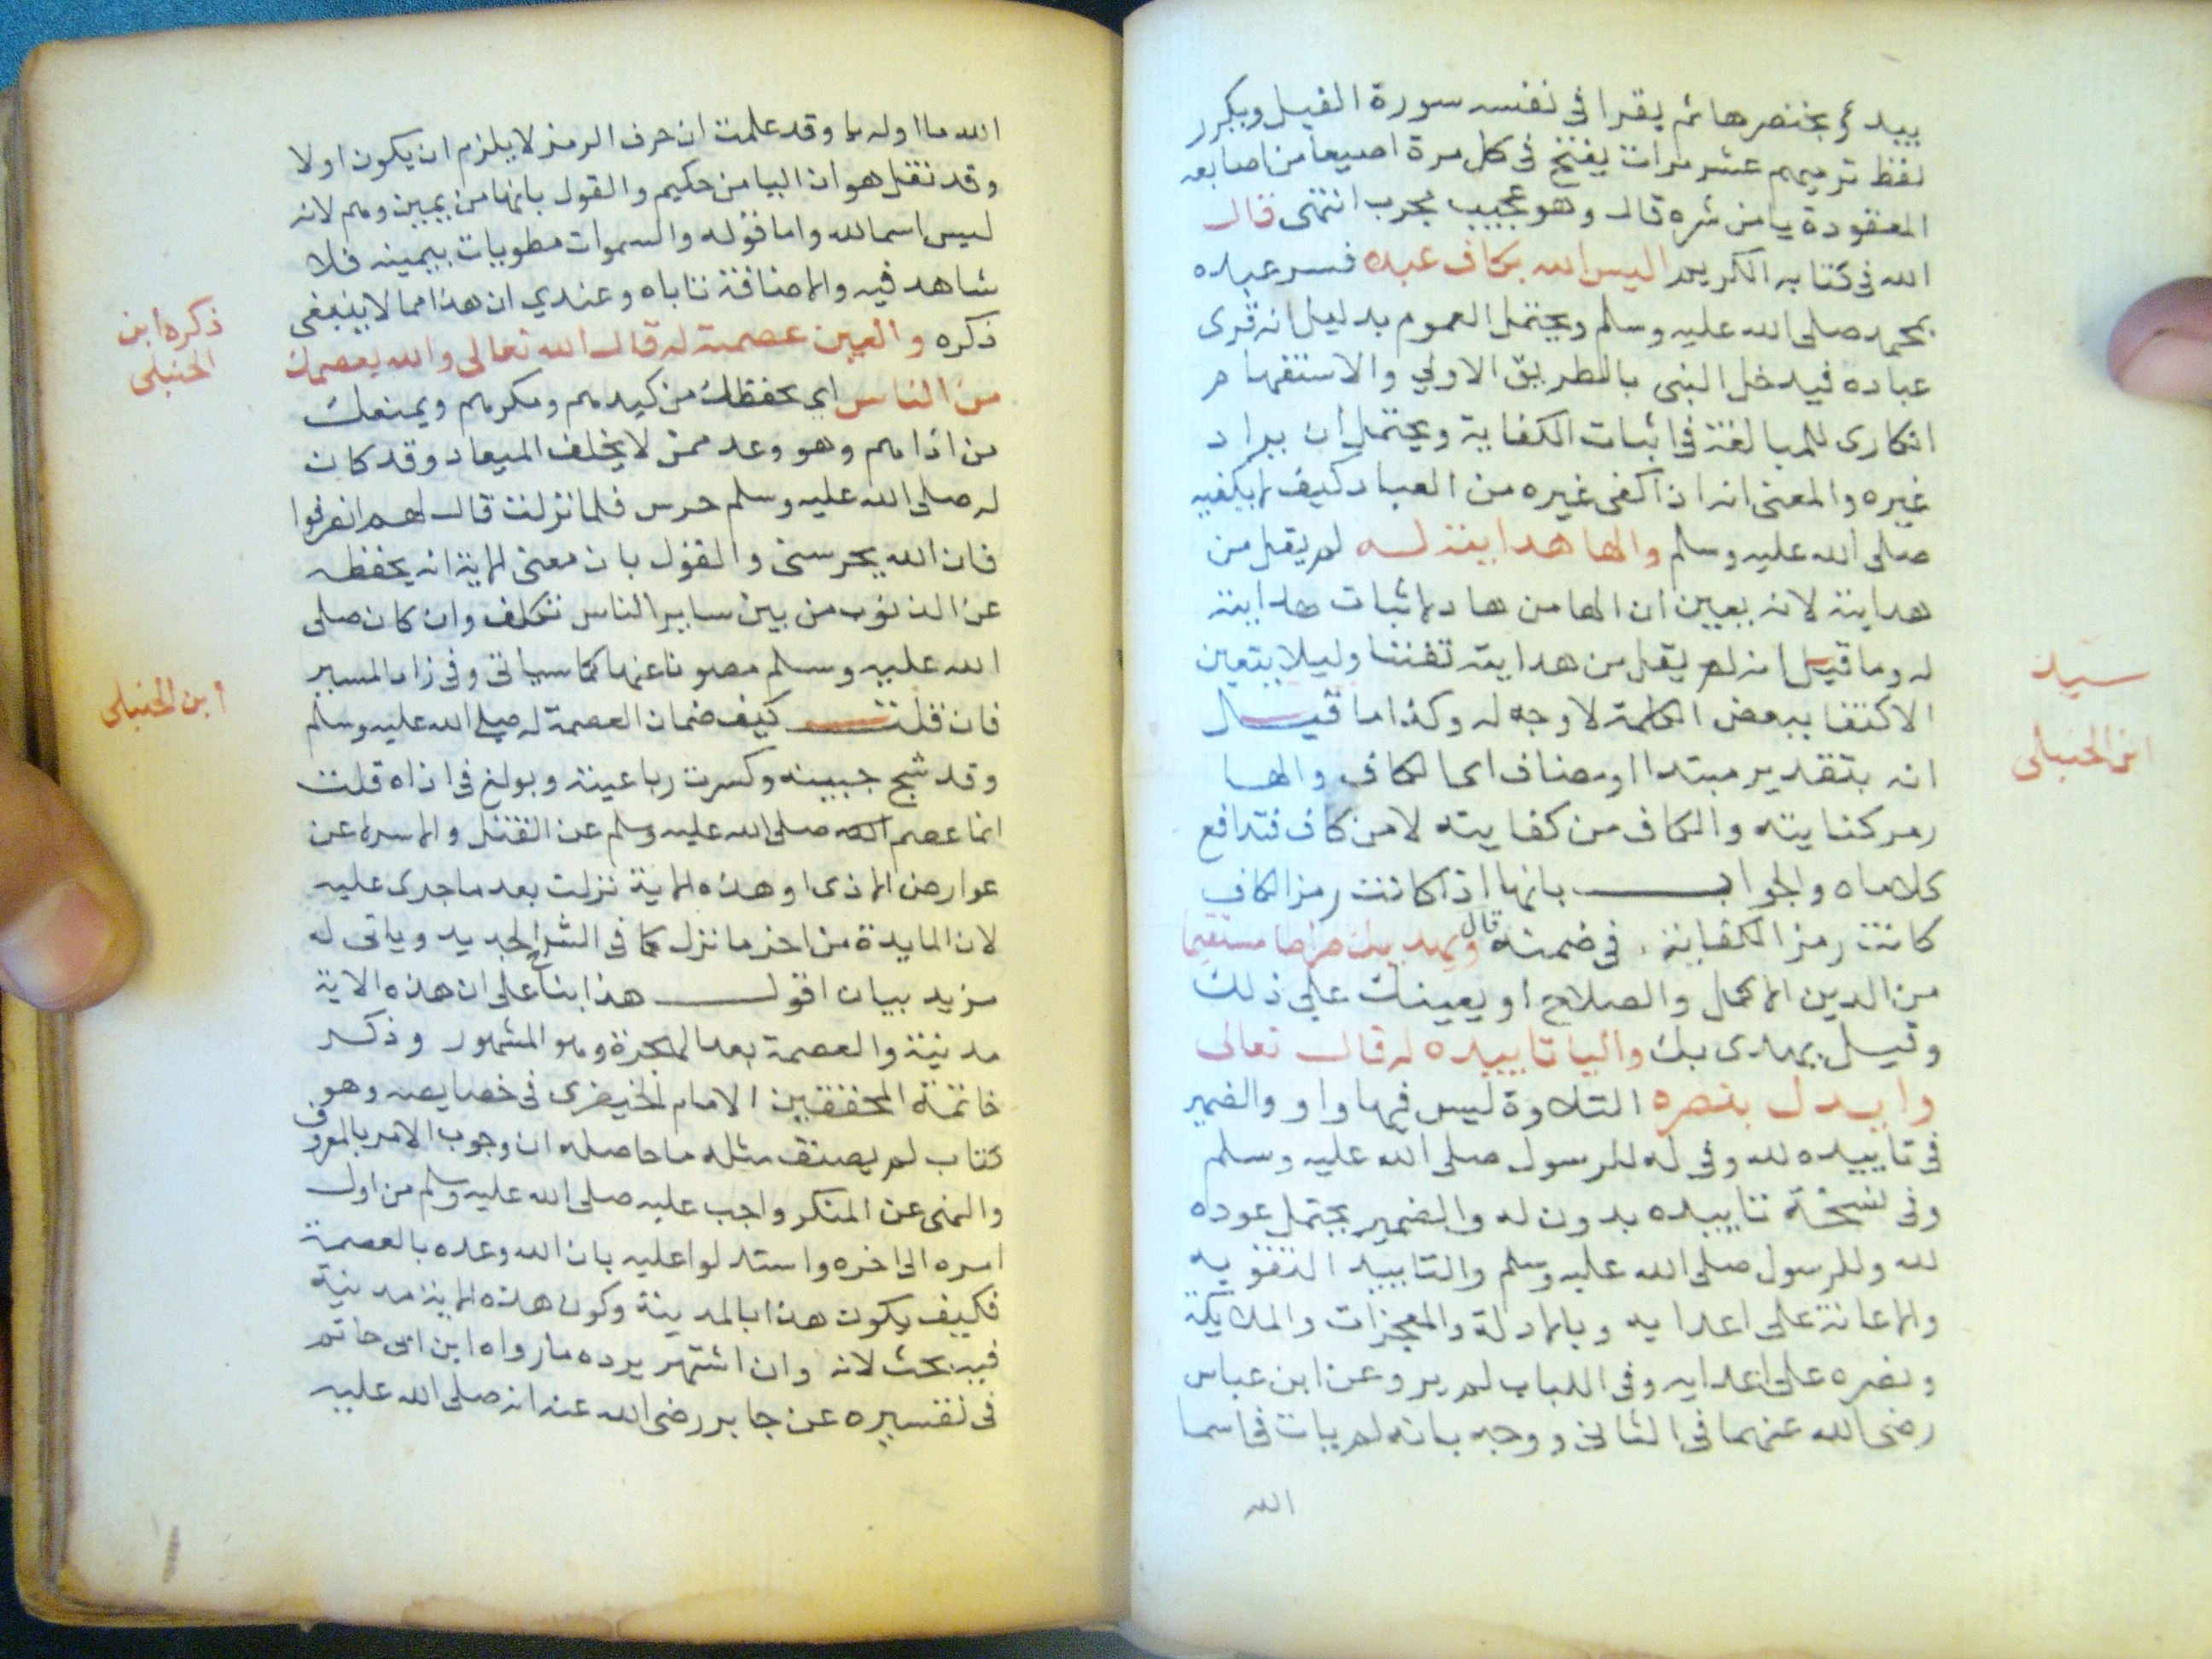 بيده ويخنصرها ثم يقرا فى نفسه سورة الفيل ويكرر
لفظ ترميهم عشر مرات يفتح فى كل مرة اصبعا من اصابعه
المعقودة يامن شره قال وهو عجيب مجرب انتهى قال
الله فى كتابه الكريم اليس الله بكاف عبده فسر عبده
بمحمد صلى الله عليه وسلم ويحتمل العموم بدليل انه قرى
عباده فيدخل النبى بالطريق الاولي والاستفهام
انكارى للمبالغة فى اثبات الكفاية ويحتمل ان يراد
غيره والمعنى انه اذا كفى غيره من العباد كيف لا يكفيه
صلى الله عليه وسلم والها هدايته له لم يقل من
هدايته لانه بعيين ان الها من هاد لاثبات هدايته
له وما قيل انه لم يقل من هدايته تفننا وليلا يتعين
الاكتفا ببعض الكلمة لا وجه له وكذا ما قيل
انه بتقدير مبتدا او مضاف اى الكاف والها
رمز كفايته والكاف من كفايته لا من كاف فتدافع
كلاماه والجواب بانها اذا كانت رمز الكاف
كانت رمز الكفاية فى ضمنه قال ويهديك صراطا مستقيما
من الدين الاكمل والصلاح او يعينك على ذلك
وقيل يهدى بك واليا تاييده له قال تعالى
وايدك بنصره التلاوة ليس فيها واو والضمير
فى تاييده لله وفى له للرسول صلى الله عليه وسلم
وفى نسخة تاييده بدون له والضمير يحتمل عوده
لله وللرسول صلى الله عليه وسلم والتاييد التقويه
والاعانة على اعدايه وبالادلة والمعجزات والملايكة
ونصره على اعدايه وفى اللباب لم يرو عن ابن عباس
رضى الله عنهما فى الثانى ووجه بانه لم يات فى اسما
الله
ابن الحنبلى
الله ما اوله يا وقد علمت ان حرف الرمز لا يلزم ان يكون اولا
وقد نقل هو ان اليا من حكيم والقول بانها من يمين وهم لانه
ليس اسما لله واما قوله والسموات مطويات بيمينه فلا
شاهد فيه والاضافة تاباه وعندي ان هذا مما لا ينبغى
ذكره والعين عصمته له قال الله تعالى والله يعصمك
من الناس اى يحفظك من كيدهم ومكرهم ويمنعك
من اذاهم وهو وعد ممن لا يخلف الميعاد وقد كان
له صلى الله عليه وسلم حرس فلما نزلت قال لهم انصرفوا
فان الله يحرسنى والقول بان معنى الاية انه يحفظه
عن الذنوب من بين ساير الناس تكلف وان كان صلى
الله عليه وسلم مصونا عنها كما سياتى وفى زاد المسير
فان قلت كيف ضمان العصمة له صلى الله عليه وسلم
وقد شج جبينه وكسرت رباعيته وبولغ فى اذاه قلت
انما عصم الله صلى الله عليه وسلم عن القتل والاسر لا عن
عوارض الاذى او هذه الاية نزلت بعد ما جرى عليه
لان المايدة من اخر ما نزل كما فى الشرح الجديد وياتى له
مزيد بيان اقول هذا بنا على ان هذه الاية
مدنية والعصمة بعد الهجرة وهو المشهور وذكر
خاتمة المحققين الامام الخيضرى فى خصايصه وهو
كتاب لم يصنف مثله ما حاصله ان وجوب الامر بالمعروف
والنهى عن المنكر واجب عليه صلى الله عليه وسلم من اول
امره الى اخره واستدلوا عليه بان الله وعده بالعصمة
فكيف يكون هذا بالمدينة وكون هذه الاية مدنية
فيه بحث لانه وان اشتهر يرده ما رواه ابن ابى حاتم
فى تفسيره عن جابر رضى الله عنه انه صلى الله عليه
ذكره ابن
الحنبلى
ابن الحنبلى